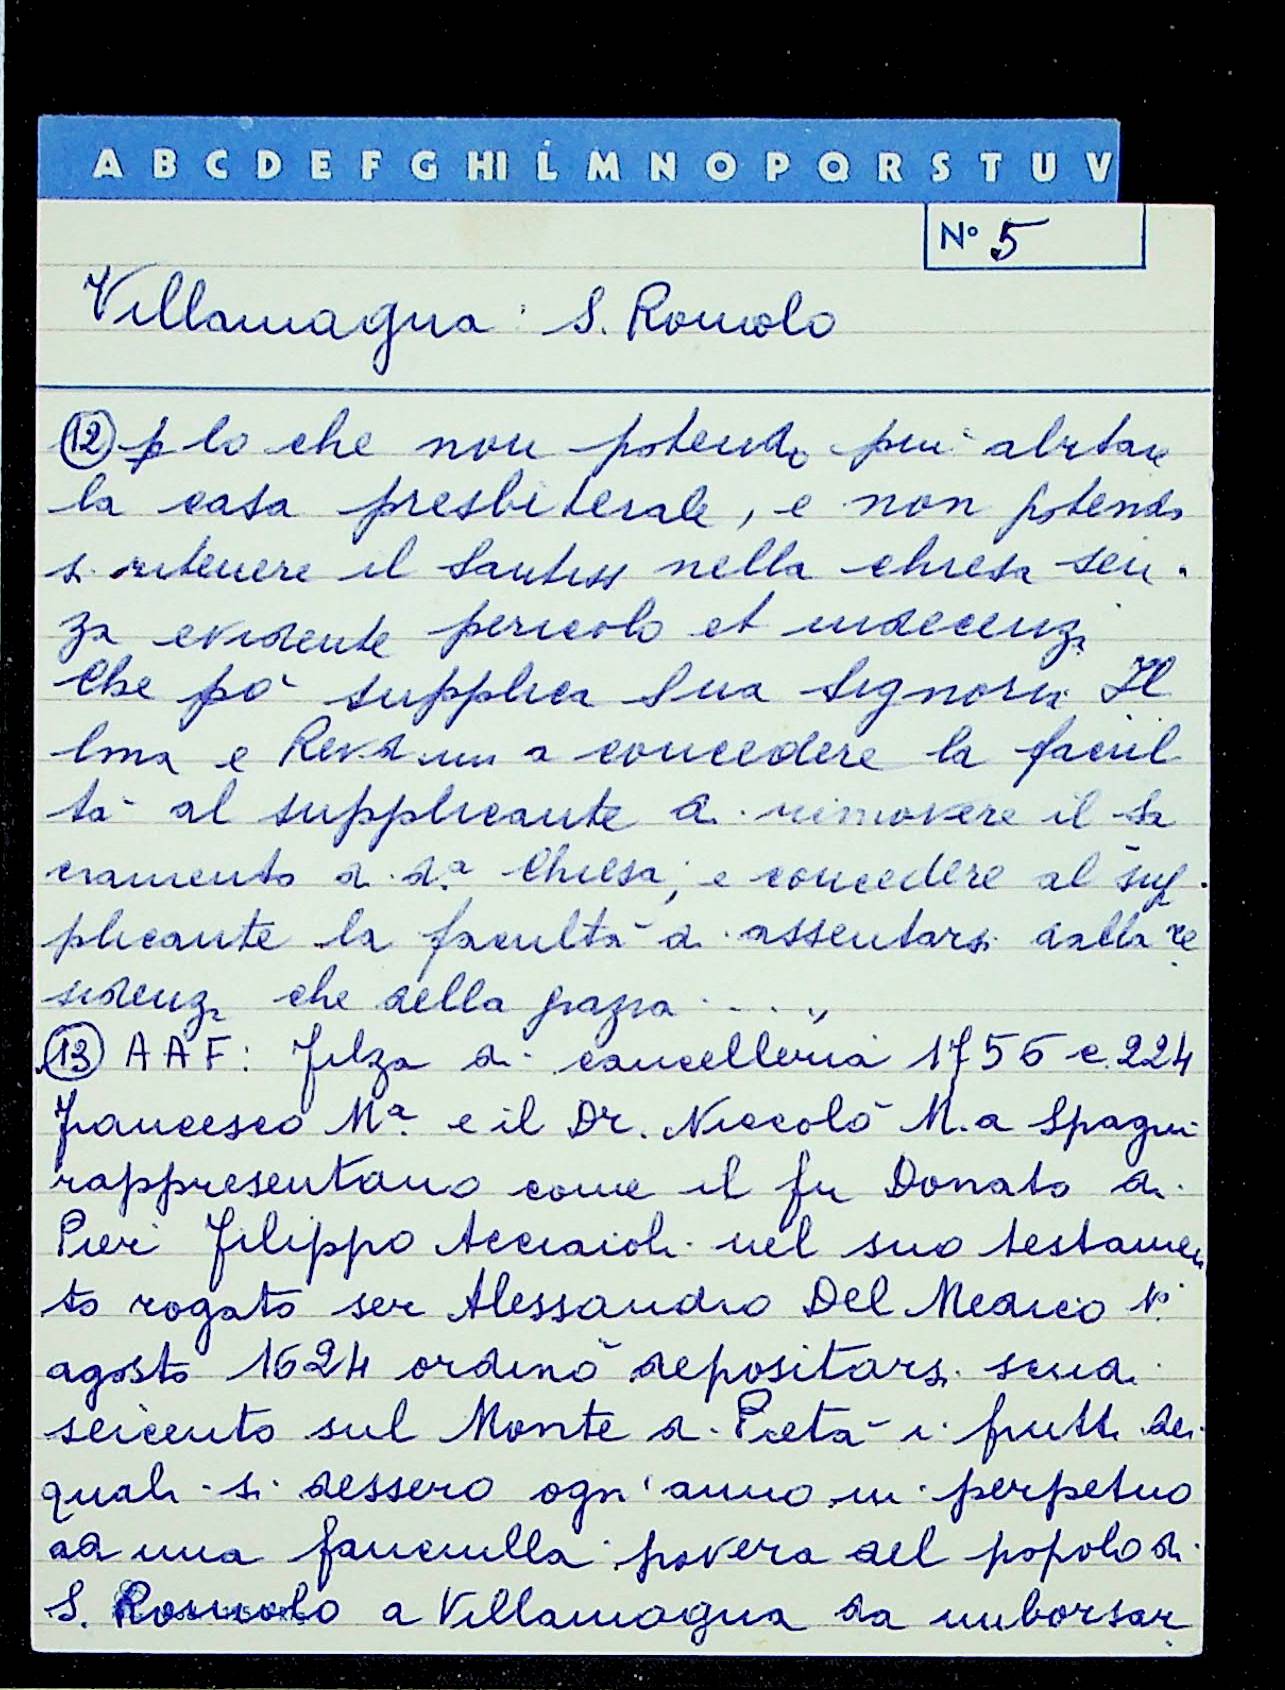 A B C D E F G HI L M N O P Q R S T U V
N° 5
Villamagna: S. Romolo
(12) p lo che non potendo più abitare
la casa presbiterale, e non potendo
si ritenere il Santiss nella chiesa sen-
za evidente pericolo et indecenza
Che pò supplica Sua Signoria Il
lma e Revd.ma a concedere la facul
tà al supplicante di rimovere il Sa
cramento di d.a Chiesa, e concedere al sup-
plicante la facultà di assentarsi dalla re
sidenza che della grazia ...."
(13) AAF: Filza di cancelleria 1756 c. 224
Francesco M.a e il Dr. Niccolò M.a Spagni
rappresentano come il fu Donato di
Pier Filippo Acciaioli nel suo testamen
to rogato ser Alessandro Del Medico
agosto 1624 ordinò depositarsi scudi
seicento sul Monte di Pietà i frutti dei
quali si dessero ogn'anno in perpetuo
ad una fanciulla povera del popolo di
S. Romolo a Villamagna da imborsar